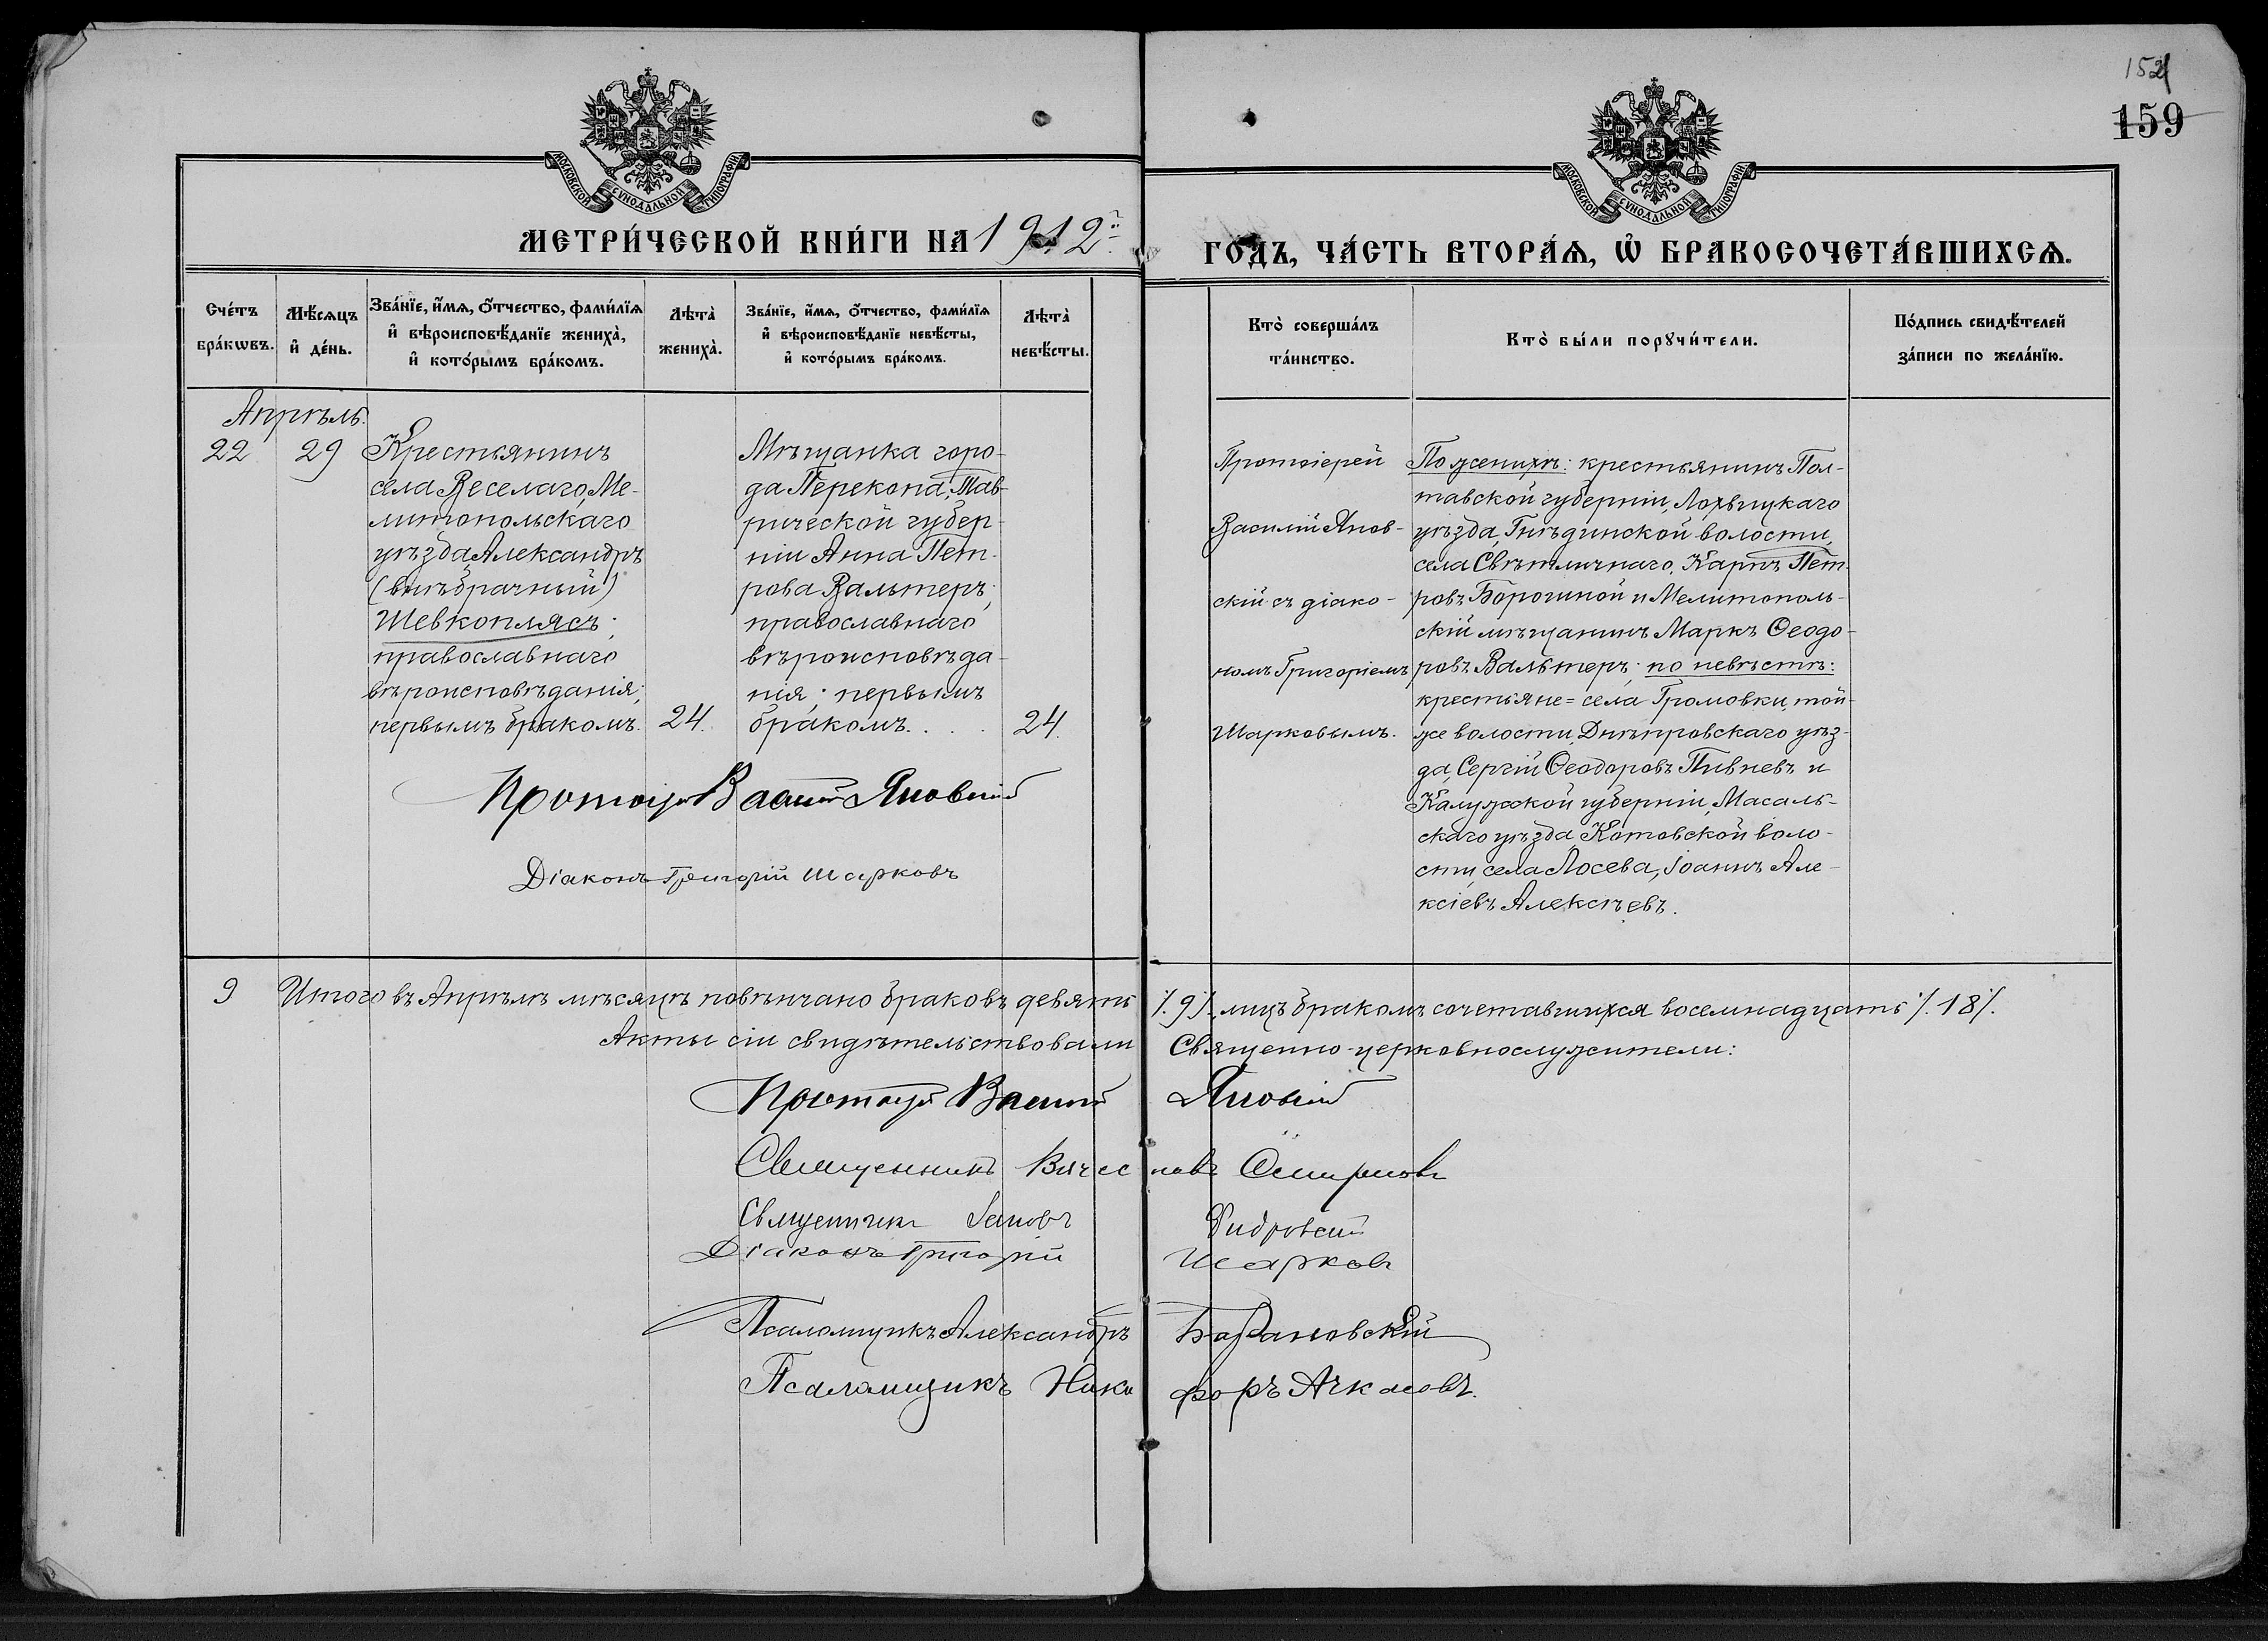 152
159
МОСКОВСКОЙ СѴНОДАЛЬНОЙ ТИПОГРАФІИ
МОСКОВСКОЙ СѴНОДАЛЬНОЙ ТИПОГРАФІИ
МЕТРИ́ЧЕСКОЙ КНИ́ГИ НА 1912й
ГО́ДЪ, ЧА́СТЬ ВТОРА́Ѧ, Ѽ БРАКОСОЧЕТА́ВШИХСѦ.
Сче́тъ бра́кѡвъ.
Мѣ́сѧцъ и҆ де́нь.
Зва́нїе, и҆́мѧ, о҆́тчество, фами́лїѧ и҆ вѣроисповѣ́данїе жениха̀, и҆ кото́рымъ бра́комъ.
Лѣта̀ жениха̀.
Зва́нїе, и҆́мѧ, о҆́тчество, фами́лїѧ и҆ вѣроисповѣ́данїе невѣ́сты, и҆ кото́рымъ бра́комъ.
Лѣта̀ невѣ́сты.
Кто̀ соверша́лъ та́инство.
Кто̀ бы́ли порꙋчи́тели.
По́дпись свидѣ́телей за́писи по жела́нїю.
Апрѣль.
22
29
Крестьянинъ
села Веселаго, Ме-
литопольскаго
уѣзда, Александръ
(внѣбрачный)
Шевкоплясъ;
православнаго
вѣроисповѣданія;
первымъ бракомъ.
24.
Мѣщанка горо-
да Перекопа, Тав-
рической губер-
ніи Анна Пет-
рова Вальтеръ;
православнаго
вѣроисповѣда-
нія; первымъ
бракомъ. . . .
24.
Протоіерей Василій Яновскій
Діаконъ Григорій Шарковъ
Протоіерей
Василій Янов-
скій съ діако-
номъ Григоріемъ
Шарковымъ.
По женихѣ: крестьянинъ Пол-
тавской губерніи, Лохвицкаго
уѣзда, Гнѣдинской волости,
села Свѣтличнаго, Карпъ Пет-
ровъ Борогиной и Мелитополь-
скій мѣщанинъ Маркъ Ѳеодо-
ровъ Вальтеръ; по невѣстѣ:
крестьяне = села Громовки, той-
же волости, Днѣпровскаго уѣз-
да, Сергій Ѳеодоровъ Пивневъ и
Калужской губерніи, Масаль-
скаго уѣзда Котовской воло-
сти, села Лосева, Іоаннъ Але-
ксіевъ Алексѣевъ.
9 Итого въ Апрѣлѣ мѣсяцѣ повѣнчано браковъ девять ⁒ 9 ⁒, лицъ бракомъ сочетавшихся восемнадцать ⁒ 18 ⁒.
Акты сіи свидѣтельствовали Священно-церковнослужители:
Протоіерей Василій Яновскій
Священникъ Вячеславъ Смирновъ
Священникъ Іаковъ
Діаконъ Григорій Шарковъ
Псаломщикъ Александръ Барановскій
Псаломщикъ Никифоръ Ачкасовъ.